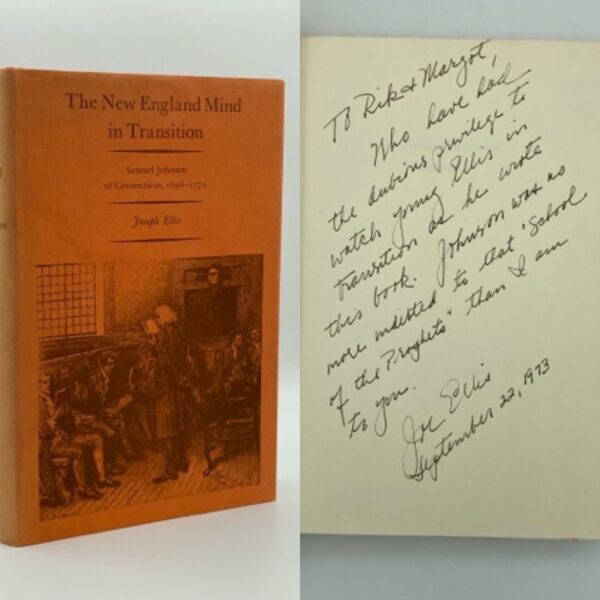 The New England Mind
in Transition
Samuel Johnson
of Connecticut, 1696–1772
Joseph Ellis
To Rik & Margot,
Who have had
the dubious privilege to
watch young Ellis in
transition as he wrote
this book. Johnson was no
more indebted to that "School
of the Prophets" than I am
to you.
Joe Ellis
September 22, 1973